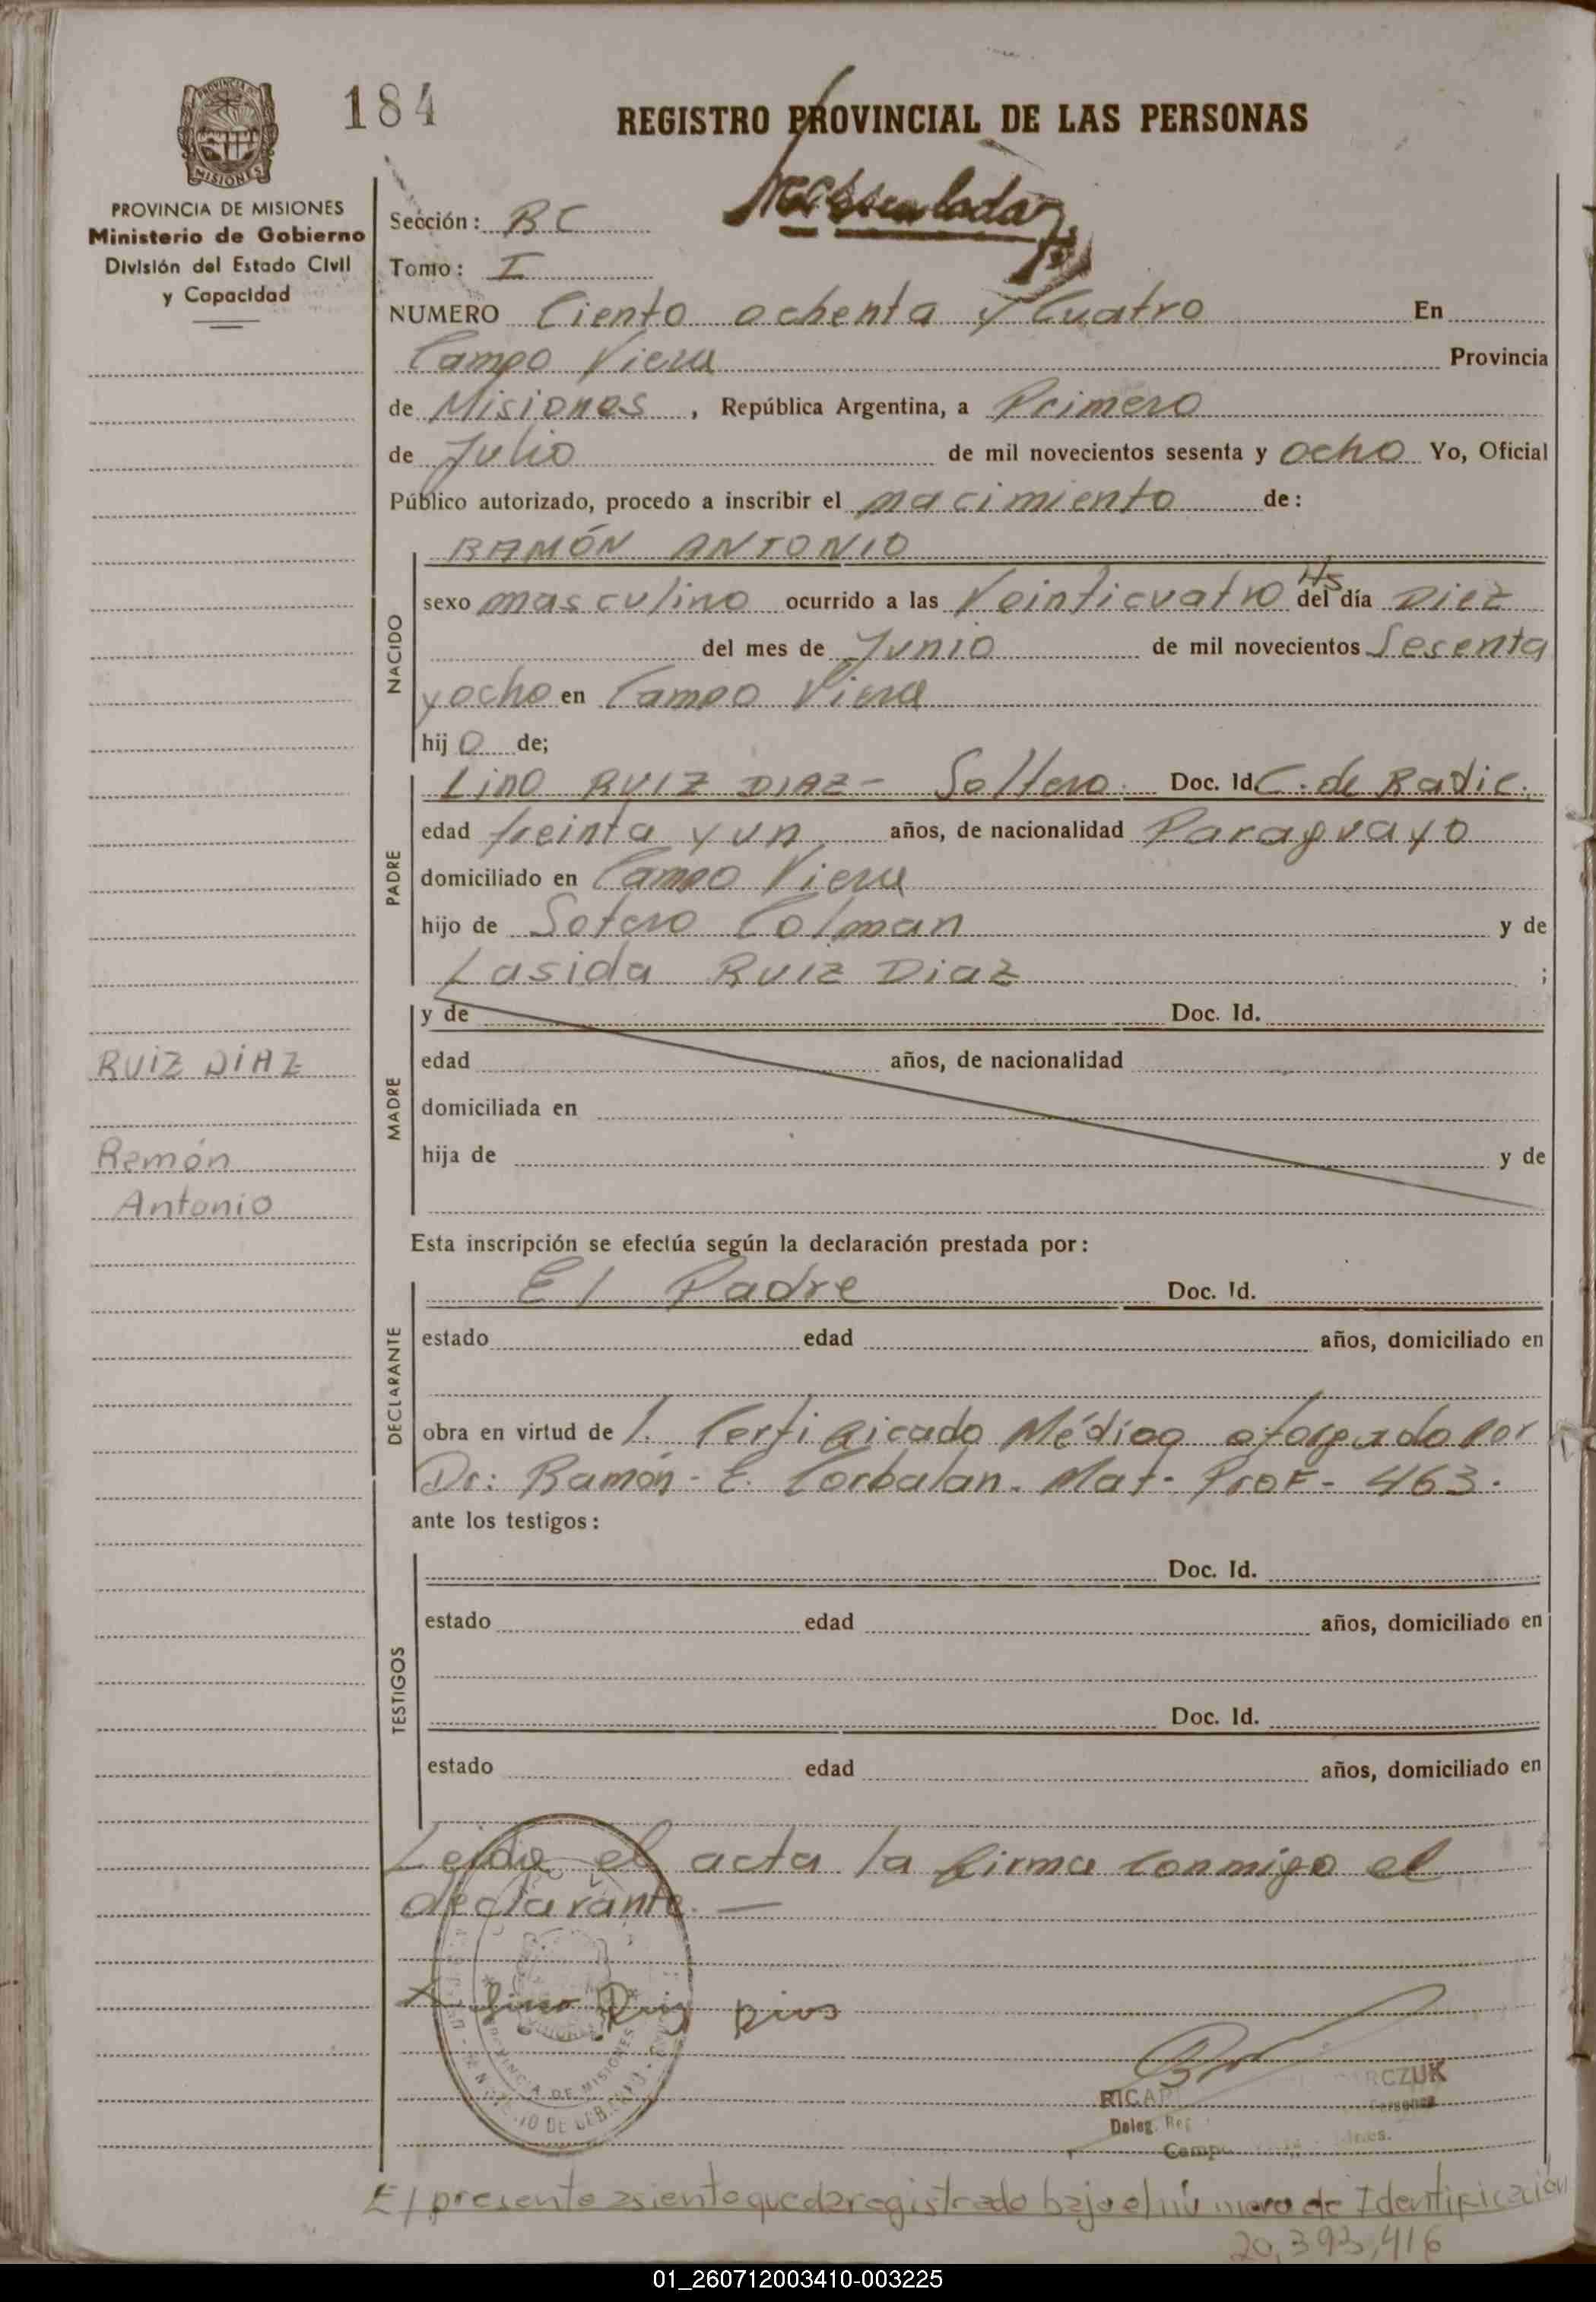 184
REGISTRO PROVINCIAL DE LAS PERSONAS
MISIONES
PROVINCIA DE MISIONES
Ministerio de Gobierno
División del Estado Civil
y Capacidad
Sección: RC
Tomo: I
NUMERO Ciento ochenta y Cuatro En
Campo Viera Provincia
de Misiones, República Argentina, a Primero
de Julio de mil novecientos sesenta y ocho Yo, Oficial
Público autorizado, procedo a inscribir el nacimiento de:
RAMÓN ANTONIO
NACIDO
sexo masculino ocurrido a las Veinticuatro Hs del día Diez
del mes de Junio de mil novecientos Sesenta
y ocho en Campo Viera
hijo de;
PADRE
Lino RUIZ DIAZ - Soltero. Doc. Id C. de Radic.
edad treinta y un años, de nacionalidad Paraguayo
domiciliado en Campo Viera
hijo de Sotero Colman y de
Lasida Ruiz Diaz ;
MADRE
y de Doc. Id.
edad años, de nacionalidad
domiciliada en
hija de y de
RUIZ DIAZ
Ramón
Antonio
Esta inscripción se efectúa según la declaración prestada por:
DECLARANTE
El Padre Doc. Id.
estado edad años, domiciliado en
obra en virtud de 1. Certificado Médico otorgado Por
Dr: Ramón - E. Corbalan. Mat - Prof - 463.
ante los testigos:
TESTIGOS
Doc. Id.
estado edad años, domiciliado en
Doc. Id.
estado edad años, domiciliado en
Leida el acta la firma conmigo el
declarante. —
Lino Ruiz
PROVINCIA DE MISIONES
RCZUK
Deleg. Reg
El presente asiento queda registrado bajo el número de Identificación
20,393,416
01_260712003410-003225